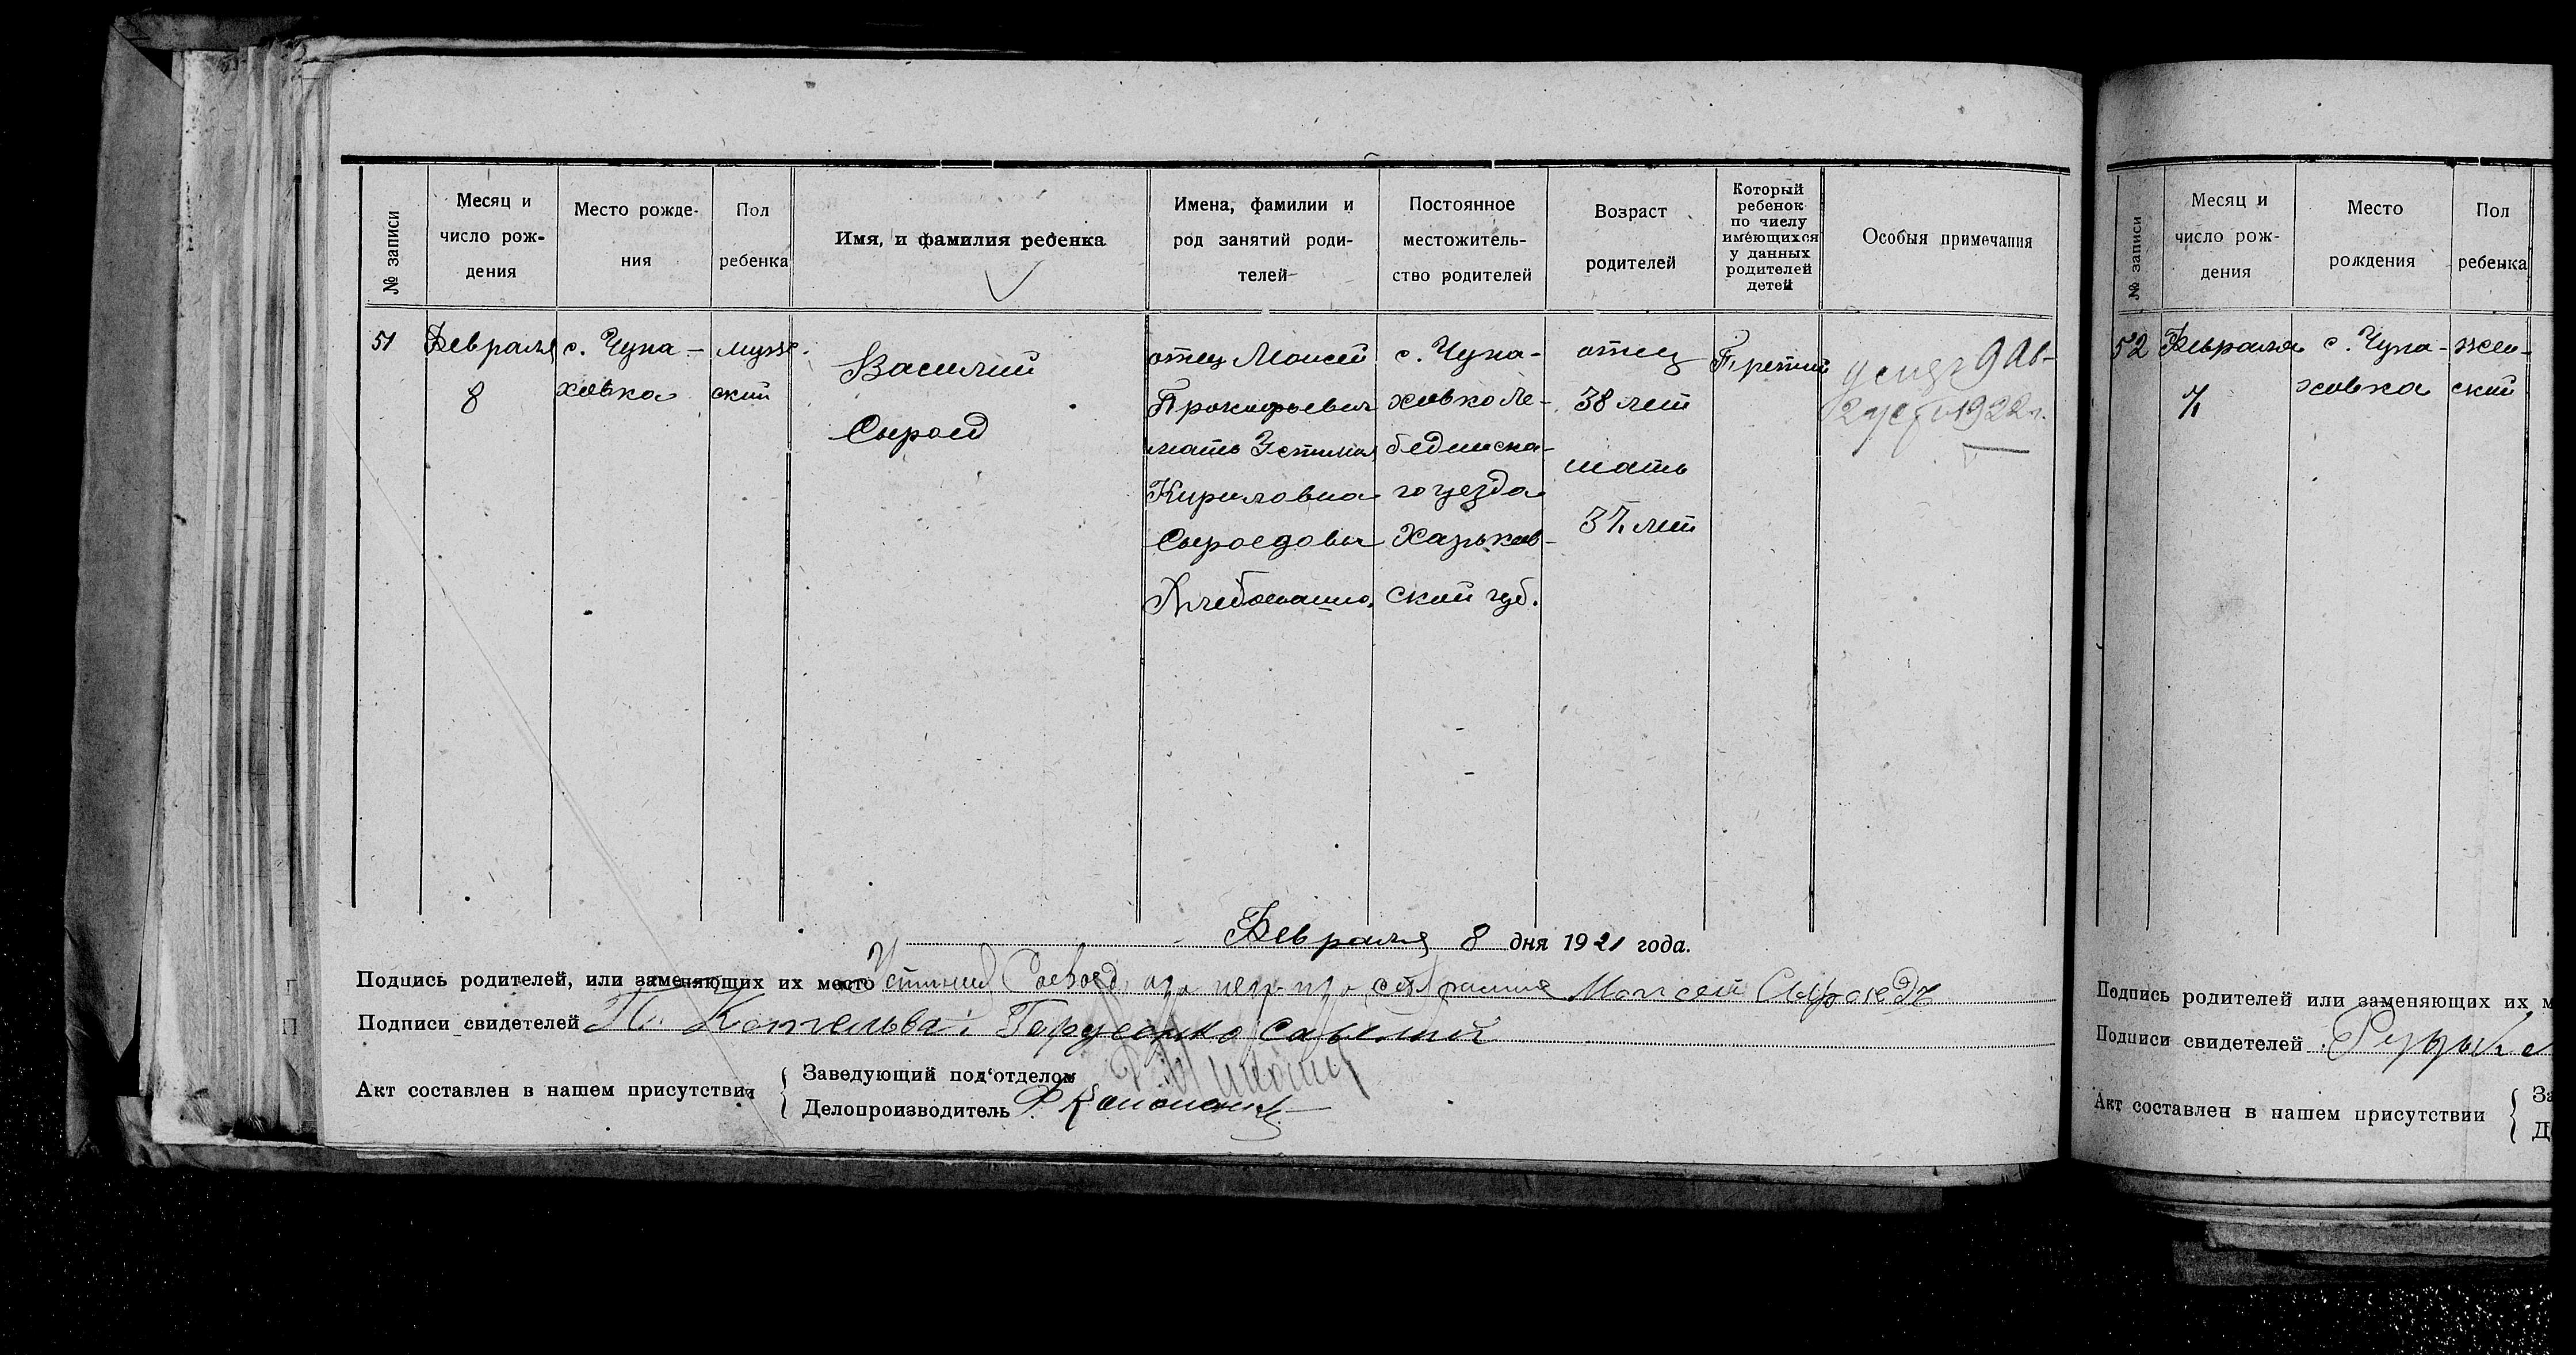 № записи
Месяц и число рождения
Место рождения
Пол ребенка
Имя, и фамилия ребенка
Имена, фамилии и род занятий родителей
Постоянное местожительство родителей
Возраст родителей
Который ребенок по числу имеющихся у данных родителей детей
Особыя примечания
51
Февраля
8
с. Чупа-
ховка
мужс-
ский
Василий
Сыроед
отец Моисей
Прокофьевич
мать Устиния
Кириловна
Сыроедовы
Хлебопашц.
с. Чупа-
ховка Ле-
бединска-
го уезда
Харьков-
ской губ.
отец
38 лет
мать
37 лет
Третий
9 Ав-
1922 г.
Февраля 8 дня 1921 года.
Подпись родителей, или заменяющих их место Устиния Моисей Сыроедъ
Подписи свидетелей П. Котельва
Акт составлен в нашем присутствии
Заведующий под‘отделом
Делопроизводитель
№ записи
Месяц и число рождения
Место рождения
Пол ребенка
52
Февраля
7
с. Чупа-
ховка
жен-
ский
Подпись родителей или заменяющих их м
Подписи свидетелей
Акт составлен в нашем присутствии
За
Д